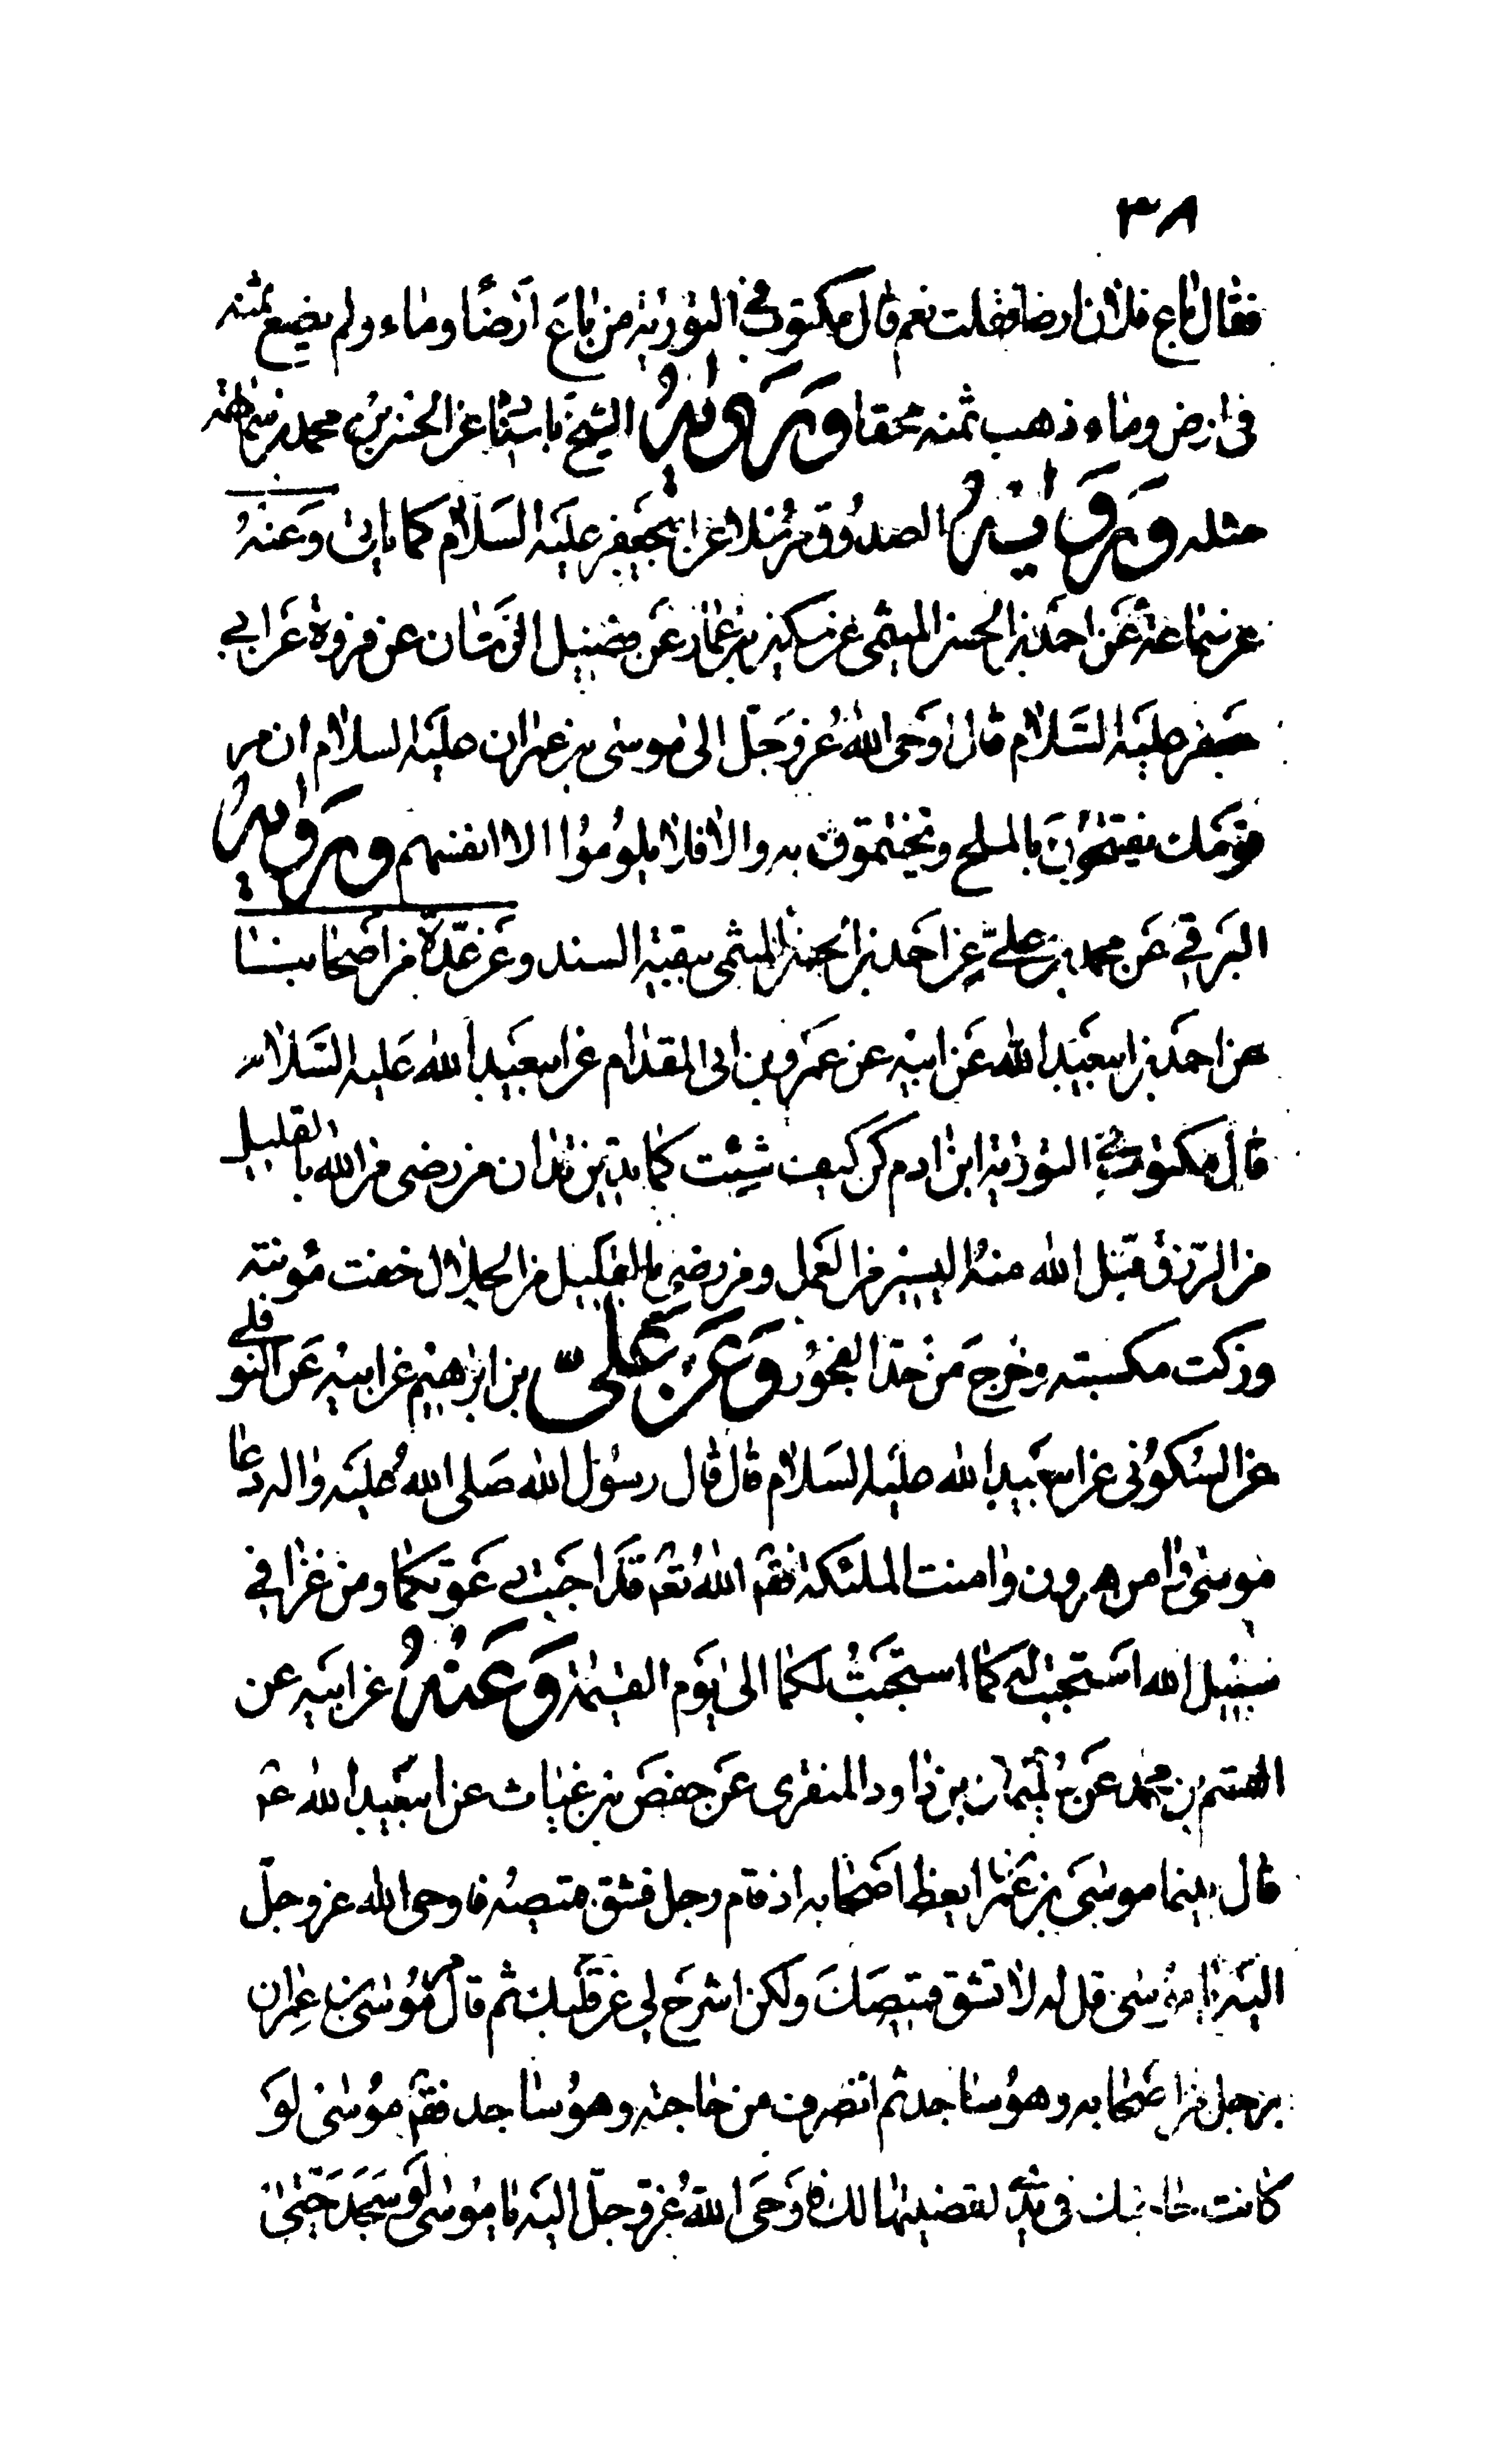 ٣٨
فقال باع فلان ارضا فقلت نعم قال مكتوب في التورية من باع ارضًا وماء ولم يضع ثمنه
في ارض وماء ذهب ثمنه محقا ورواه الشيخ باسناده عن الحسن بن محمد بن سماعة
مثله ورواه الصدوق مرسلا عن ابي جعفر عليه السلام كما ياتي وعنه
عن سماعة عن احمد بن الحسن الميثمي عن مسكين بن عمار عن فضيل الرسان عن فروة عن ابي
جعفر عليه السلام قال اوحى الله عز وجل الى موسى بن عمران عليه السلام ان مر
قومك يفتتحون بالملح ويختتمون به والا فلا يلوموا الا انفسهم ورواه
البرقي عن محمد بن علي عن احمد بن الحسن الميثمي ببقية السند وعن عدة من اصحابنا
عن احمد بن ابي عبد الله عن ابيه عن عمرو بن ابي المقدام عن ابي عبد الله عليه السلام
قال مكتوب في التورية ابن ادم كن كيف شئت كما تدين تدان من رضي من الله بالقليل
من الرزق قبل الله منه اليسير من العمل ومن رضي بالقليل من الحلال خفت مؤنته
وزكت مكسبته وخرج من حد الفجور وعن علي بن ابرهيم عن ابيه عن النوفلي
عن السكوني عن ابي عبد الله عليه السلام قال قال رسول الله صلى الله عليه واله دعا
موسى وامن هرون وامنت الملئكة فقال الله تعالى قد اجيبت دعوتكما ومن غزا في
سبيل الله استجيب له كما استجبت لكما الى يوم القيمة وعنه عن ابيه عن
القسم بن محمد عن سليمان بن داود المنقري عن حفص بن غياث عن ابي عبد الله ع
قال بينما موسى بن عمران يعظ اصحابه اذ قام رجل فشق قميصه فاوحى الله عز وجل
اليه يا موسى قل له لا تشق قميصك ولكن اشرح لي عن قلبك ثم قال مر موسى بن عمران
برجل من اصحابه وهو ساجد ثم انصرف من حاجته وهو ساجد فقال موسى لو
كانت حاجتك في يدي لقضيتها لك فاوحى الله عز وجل اليه يا موسى لو سجد حتى